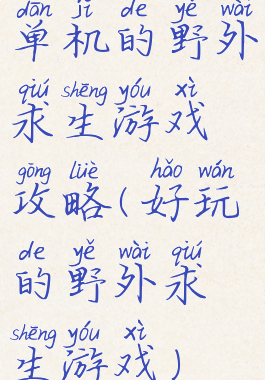 dān jī de yě wài
单机的野外
qiú shēng yóu xì
求生游戏
gōng lüè hǎo wán
攻略(好玩
de yě wài qiú
的野外求
shēng yóu xì
生游戏)